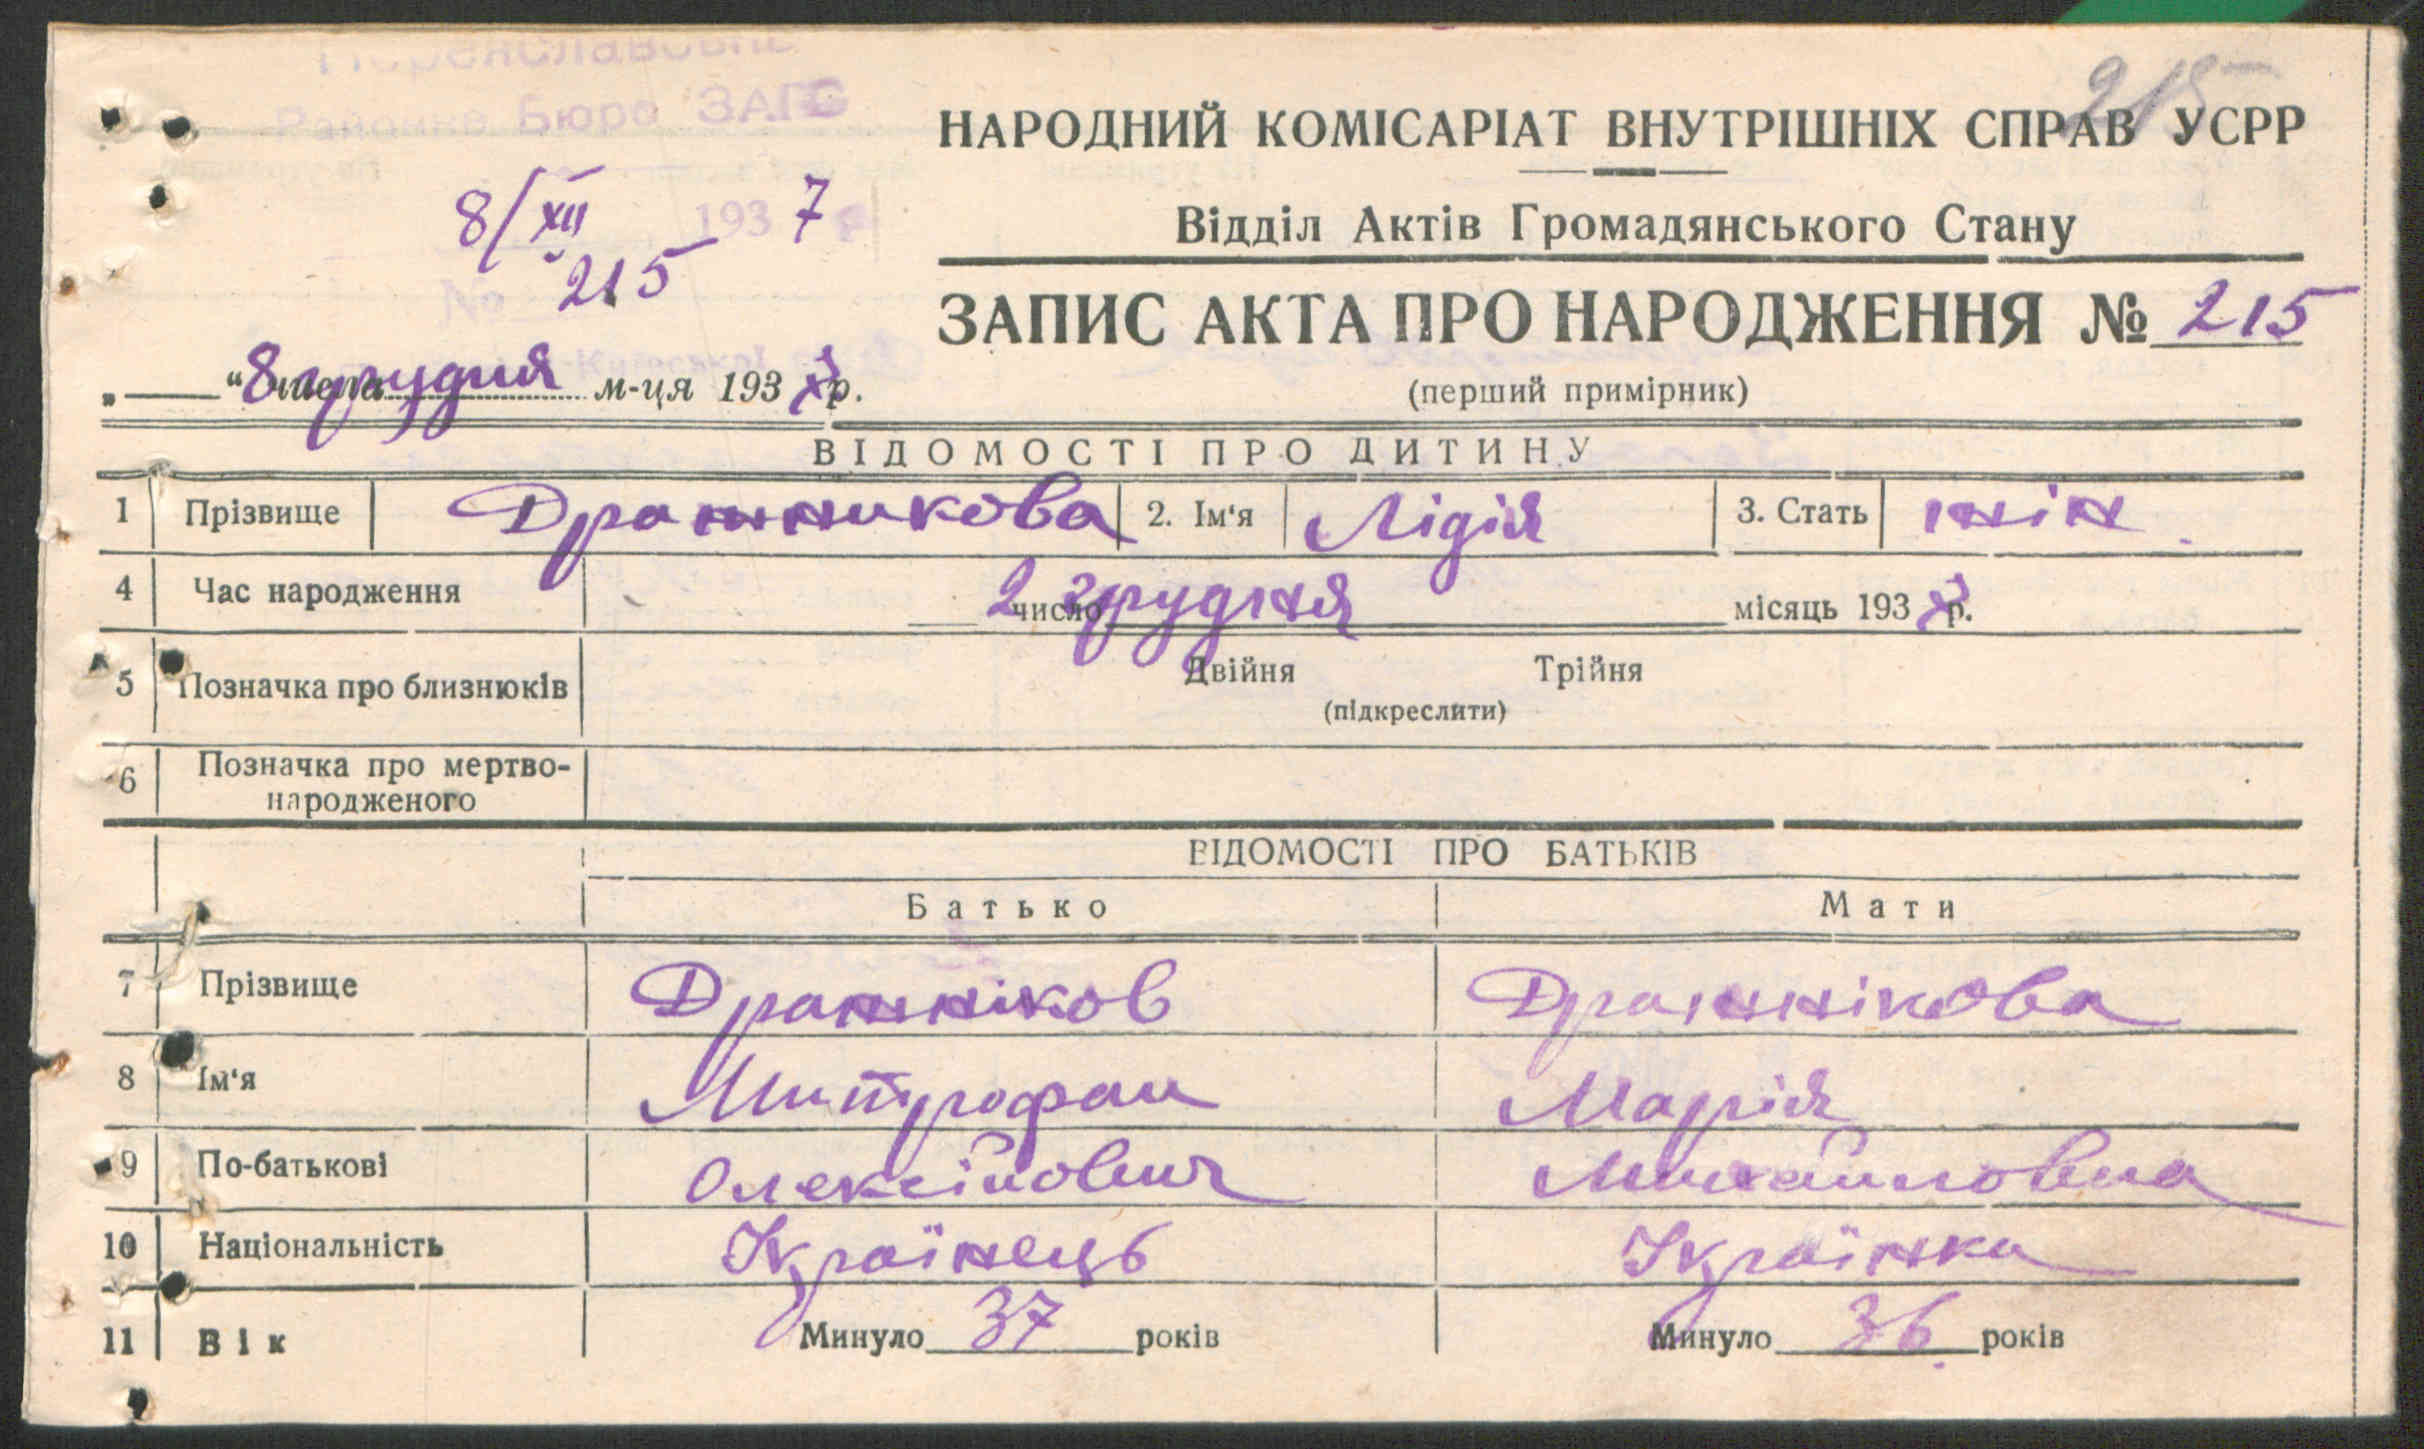 Переяславське
Районне Бюро ЗАГС
215
8/XII 1937
№ 215
НАРОДНИЙ КОМІСАРІАТ ВНУТРІШНІХ СПРАВ УСРР
Відділ Актів Громадянського Стану
ЗАПИС АКТА ПРО НАРОДЖЕННЯ № 215
„ “ 8 числа грудня м-ця 1937 р.
(перший примірник)
ВІДОМОСТІ ПРО ДИТИНУ
1 Прізвище Дранникова 2. Ім‘я Лідія 3. Стать жін.
4 Час народження 2 число грудня місяць 1937 р.
5 Позначка про близнюків Двійня Трійня
(підкреслити)
6 Позначка про мертво-
народженого
ВІДОМОСТІ ПРО БАТЬКІВ
Батько Мати
7 Прізвище Дранніков Драннікова
8 Ім‘я Митрофан Марія
9 По-батькові Олексійович Михайловна
10 Національність Українець Українка
11 Вік Минуло 37 років Минуло 36 років